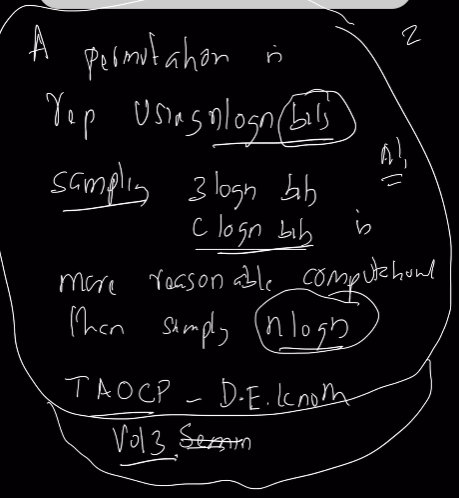 A permutation is 2
rep using nlogn bits
n!
sampling 3 logn bits
C logn bits is
more reasonable computational
than simply nlogn
TAOCP - D.E. Knuth
Vol 3.